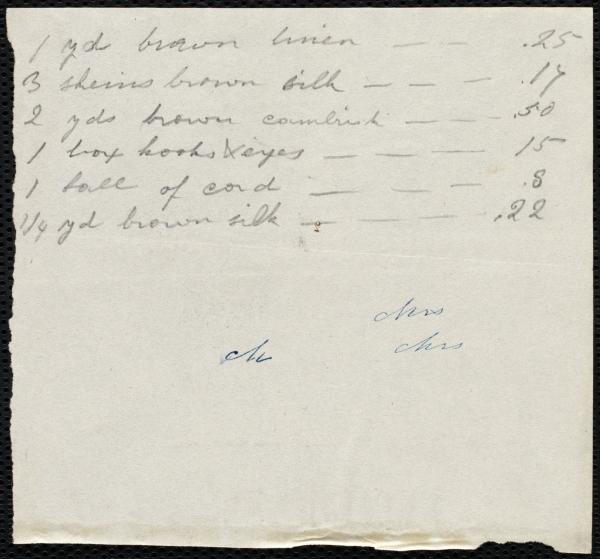 1 yd brown linen — — .25
3 skeins brown silk — — — .17
2 yds brown cambrick — — — .50
1 box hooks & eyes — — — — 15
1 ball of cord — — — .8
1/4 yd brown silk — — — — .22
Mrs
Mrs